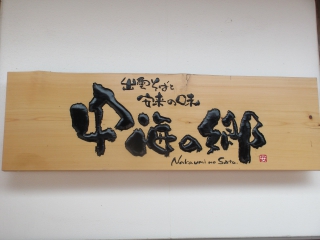 出雲そばと
安来の味
中海の郷
Nakaumi no Sato